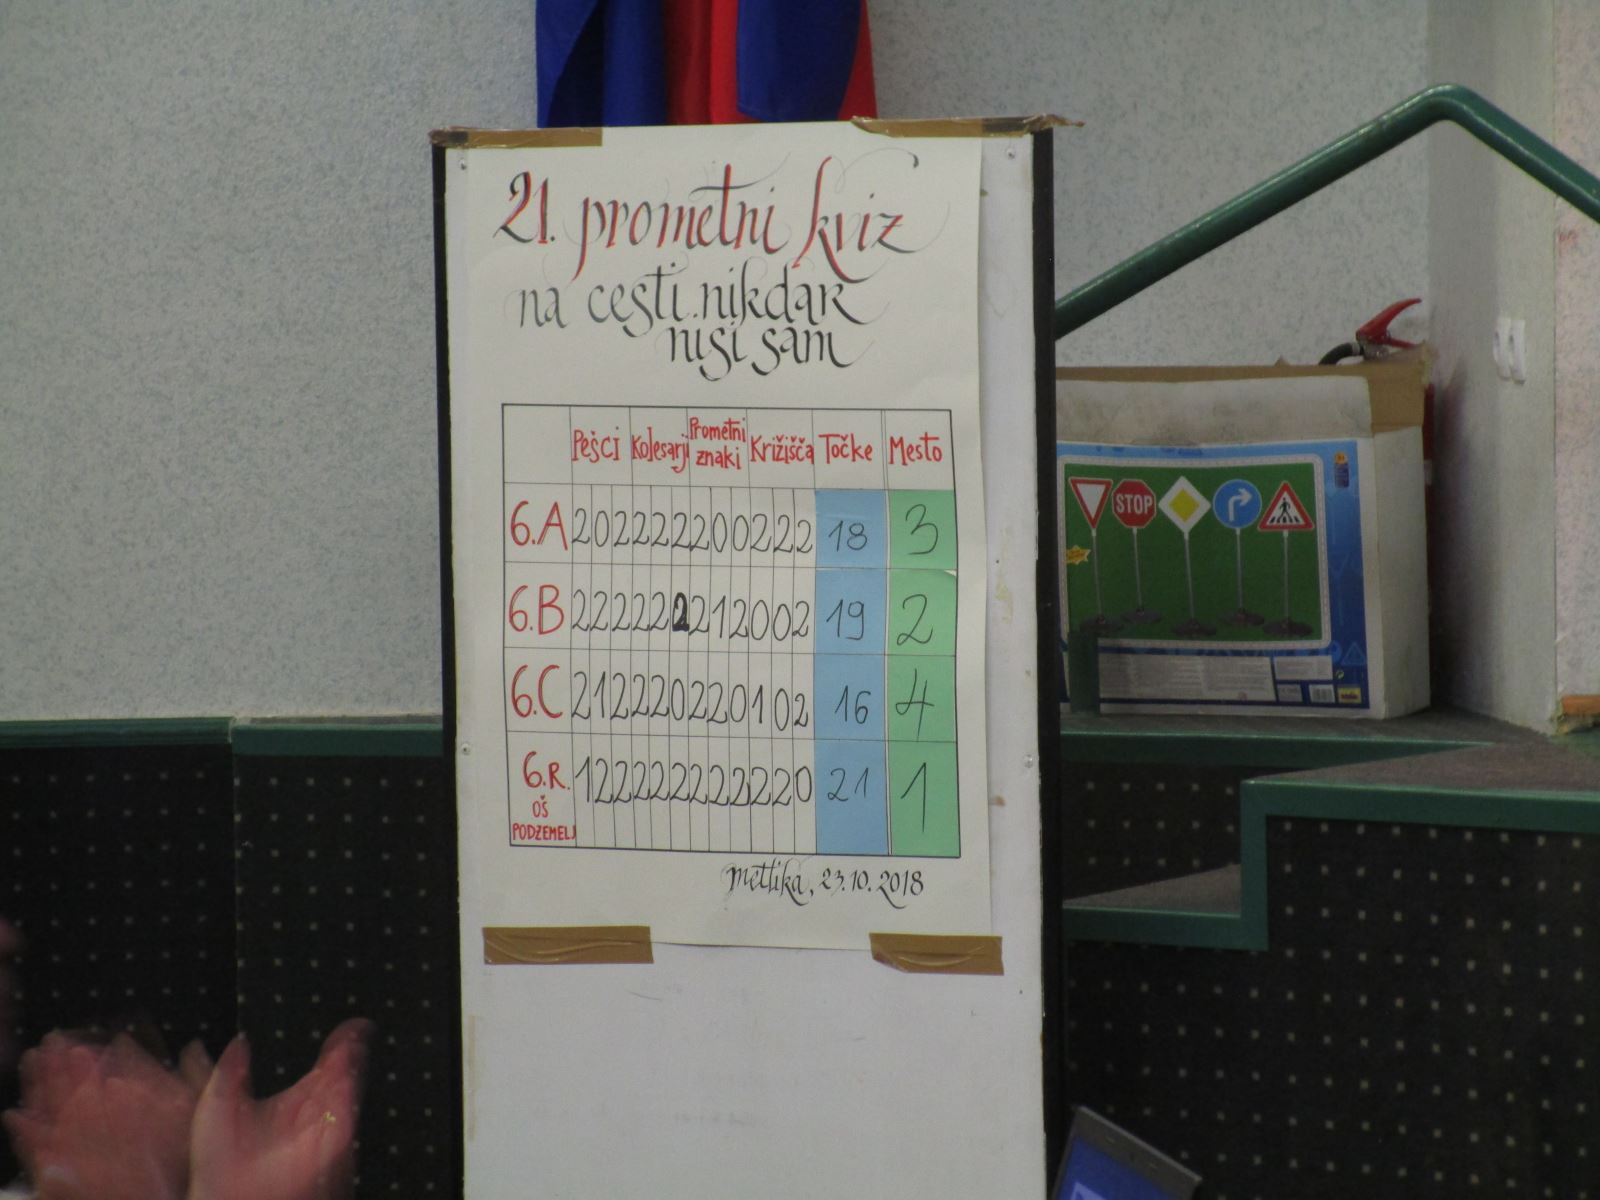 21. prometni kviz
na cesti nikdar
nisi sam
Pešci Kolesarji Prometni znaki Križišča Točke Mesto
6.A 2 0 2 2 2 2 2 0 0 2 2 2 18 3
6.B 2 2 2 2 2 2 2 1 2 0 0 2 19 2
6.C 2 1 2 2 2 0 2 2 0 1 0 2 16 4
6.R. OŠ PODZEMELJ 1 2 2 2 2 2 2 2 2 2 2 0 21 1
Metlika, 23.10.2018
STOP